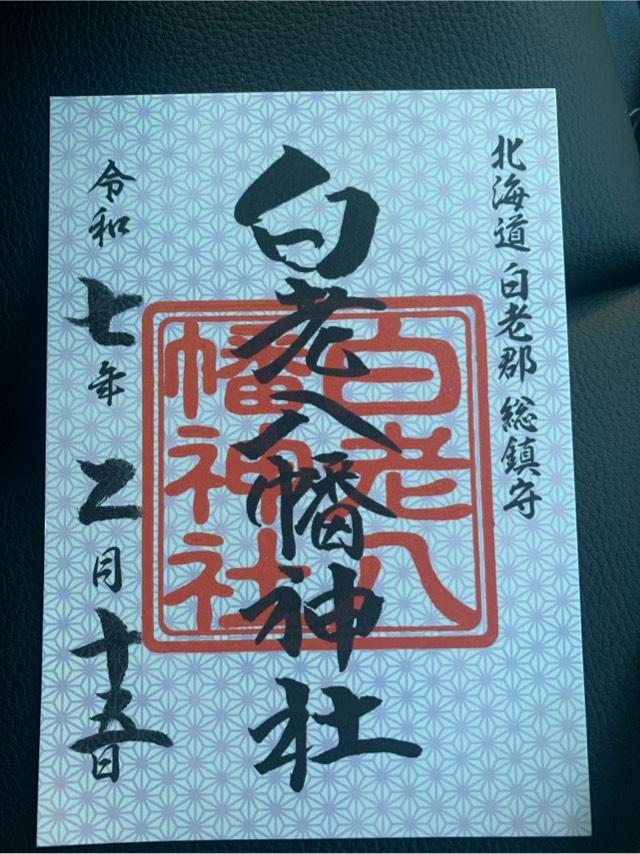 北海道 白老郡 総鎮守
白老八幡神社
白老八
幡神社
令和七年二月十五日